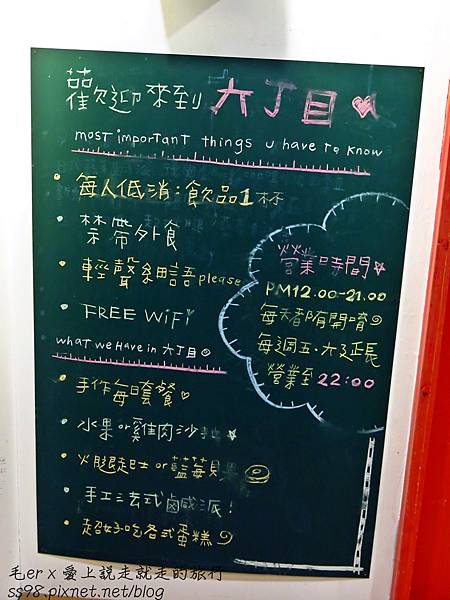 歡迎來到 六丁目
most important things u have to know
每人低消:飲品1杯
禁帶外食
輕聲細語please
FREE WiFi
營業時間
PM12.00-21.00
每天都有開唷
每週五.六延長
營業至22:00
what we have in 六丁目
手作每日套餐
水果or雞肉沙拉
火腿起士or藍莓貝果
手工法式鹹派!
超好吃各式蛋糕
毛er x 愛上說走就走的旅行
ss98.pixnet.net/blog